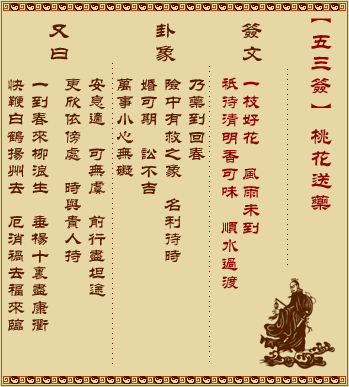 【五三簽】 桃花送藥
簽文
一枝好花 風雨未到
祇待清明香可味 順水過渡
卦象
乃藥到回春
險中有救之象 名利待時
婚可期 訟不吉
萬事小心無礙
又曰
安息適 可無虞 前行盡坦途
更欣依傍處 時與貴人待
一到春來柳浪生 垂楊十裏盡康衢
快鞭白鶴揚州去 厄消禍去福來臨